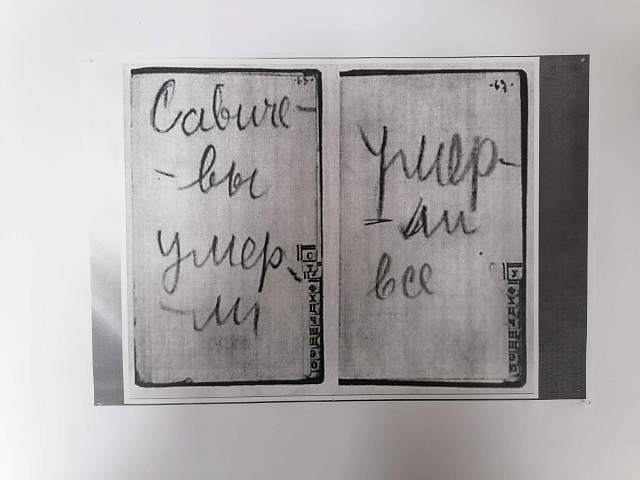 Савиче-
-вы
умер
-ли
С
Т
У
·63·
Умер-
-ли
все